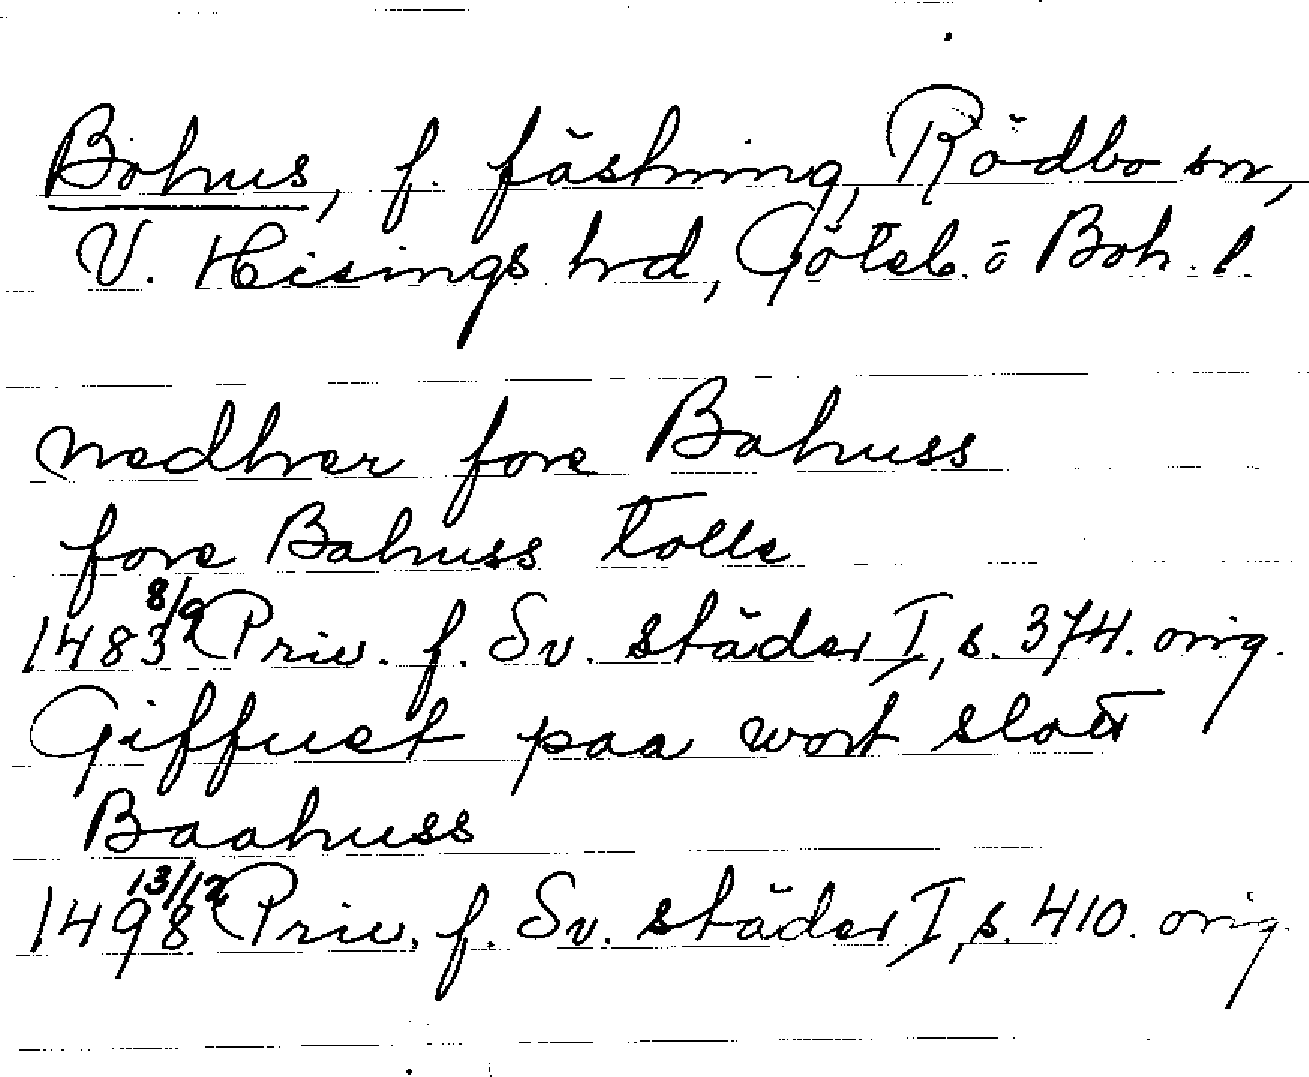 Bohus, f. fästning, Rödbo sn,
V. Hisings hrd, Göteb. o Boh. l.
nedhver fore Bahuss
fore Bahuss tolle
1483 8/9 Priv. f. Sv. städer I, s. 374. orig.
Giffuet paa wort slott
Baahuss
1498 13/12 Priv. f. Sv. städer I, s. 410. orig.